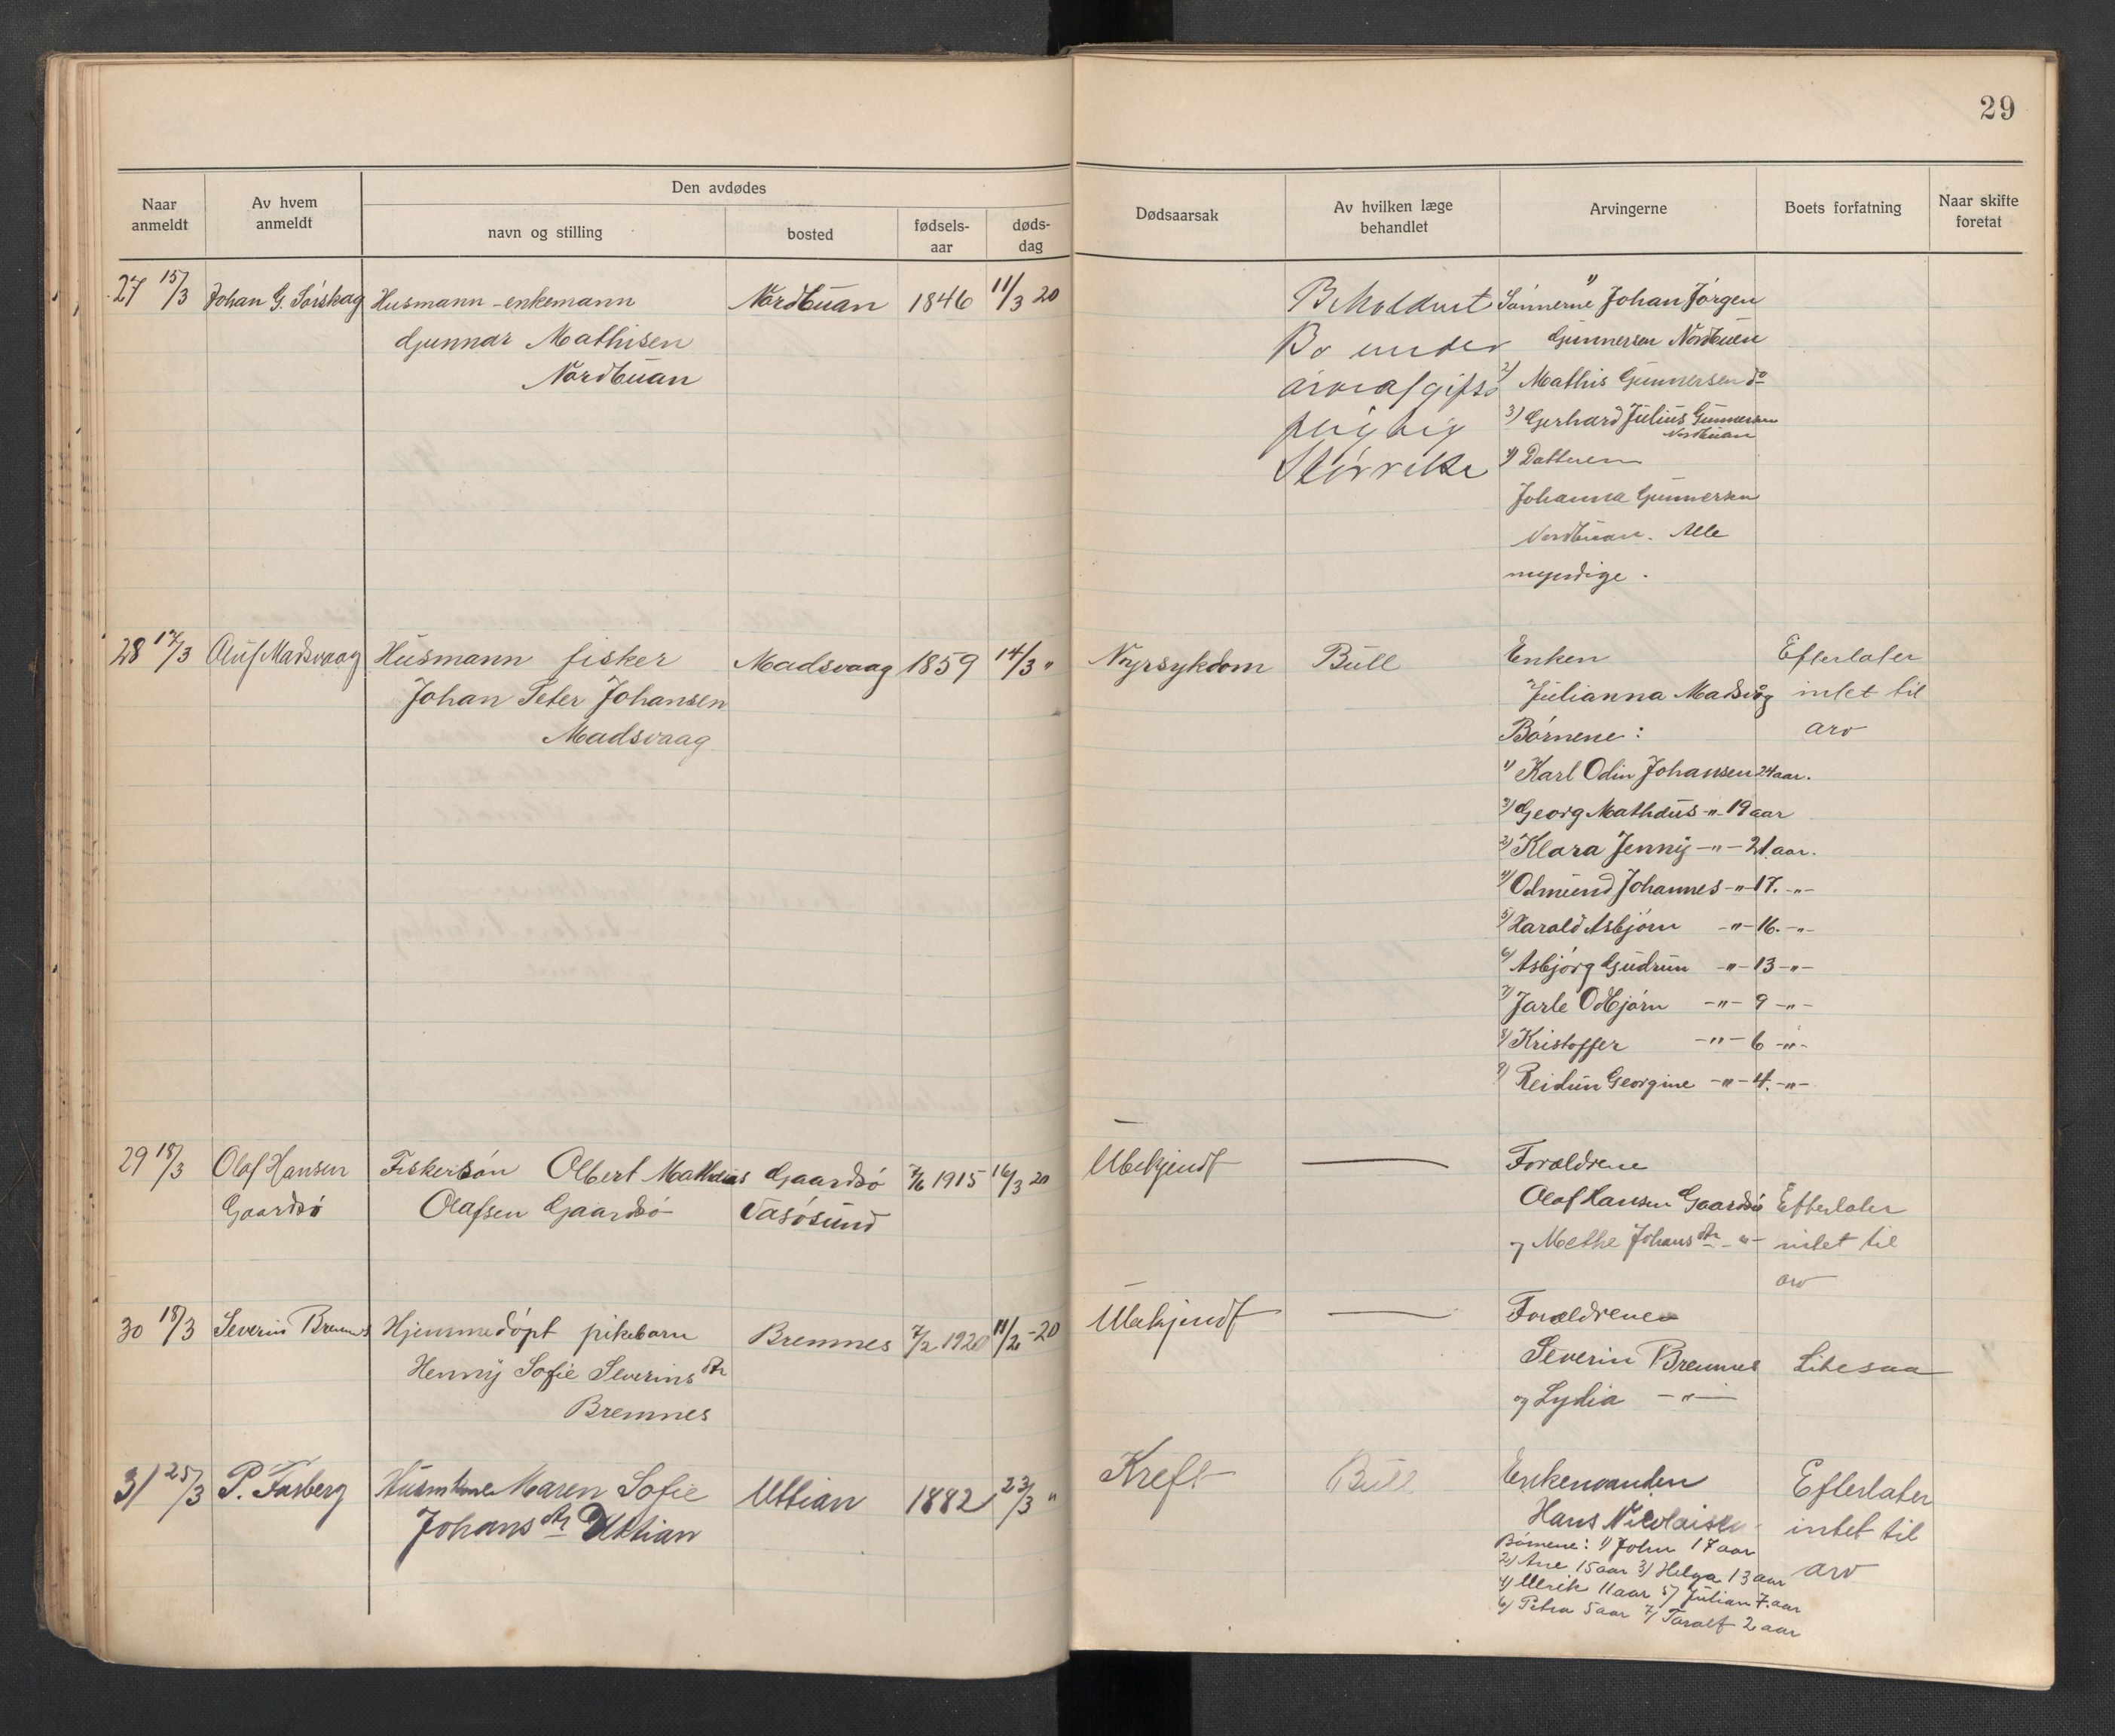 29
Naar anmeldt
Av hvem anmeldt
Den avdødes
navn og stilling
bosted
fødsels-aar
døds-dag
Dødsaarsak
Av hvilken læge behandlet
Arvingerne
Boets forfatning
Naar skifte foretat
27 15/3 Johan G. Sörskag Husmann - enkemann Nordbuan 1846 11/3 20
Gunnar Mathisen
Nordbuan
Beholdent
Bo under
arveafgifts
pligtig
Störrelse
1) Sönnerne Johan Jörgen
Gunnersen Nordbuen
2) Mathis Gunnersen do
3) Gerhard Julius Gunnersen
Nordbuan
4) Datteren
Johanna Gunnersen
Nordbuan. Alle
myndige.
28 17/3 Oluf Madsvaag Husmann fisker Madsvaag 1859 14/3 "
Johan Peter Johansen
Madsvaag
Nyrsykdom Bull
Enken
Julianna Madsvåg
Börnene:
1) Karl Odin Johansen 24 aar.
3) Georg Mathæus -"- 19 aar
2) Klara Jenny -"- 21 aar.
4) Odmund Johannes -"- 17. -"-
5) Harald Asbjörn -"- 16. -"-
6) Asbjörg Gudrun -"- 13 -"-
7) Jarle Odbjörn -"- 9 -"-
8) Kristoffer -"- 6 -"-
9) Reidun Georgine -"- 4. -"-
Efterlater
intet til
arv
29 18/3 Olaf Hansen Fiskersön Albert Mathæus Gaardsö 7/6 1915 16/3 20
Gaardsö Olafsen Gaardsö Vasösund
Ubekjendt —
Forældrene
Olaf Hansen Gaardsö
og Methe Johansdtr -"-
Efterlater
intet til
arv
30 18/3 Severin Bremnes Hjemmedöpt pikebarn Bremnes 7/2 1920 11/2 -20
Henny Sofie Severinsdtr
Bremnes
Ubekjendt —
Forældrene
Severin Bremnes
og Lydia -"-
Likesaa
31 25/3 P. Farberg Husmkone Maren Sofie Uttian 1882 23/3 "
Johansdtr Uttian
Kreft Bull
Enkemanden
Hans Nicolaisen
Börnene: 1) John 17 aar
2) Ane 15 aar 3) Helga 13 aar
4) Ulrik 11 aar 5) Julian 7. aar
6) Petra 5 aar 7) Toralf 2 aar
Efterlater
intet til
arv